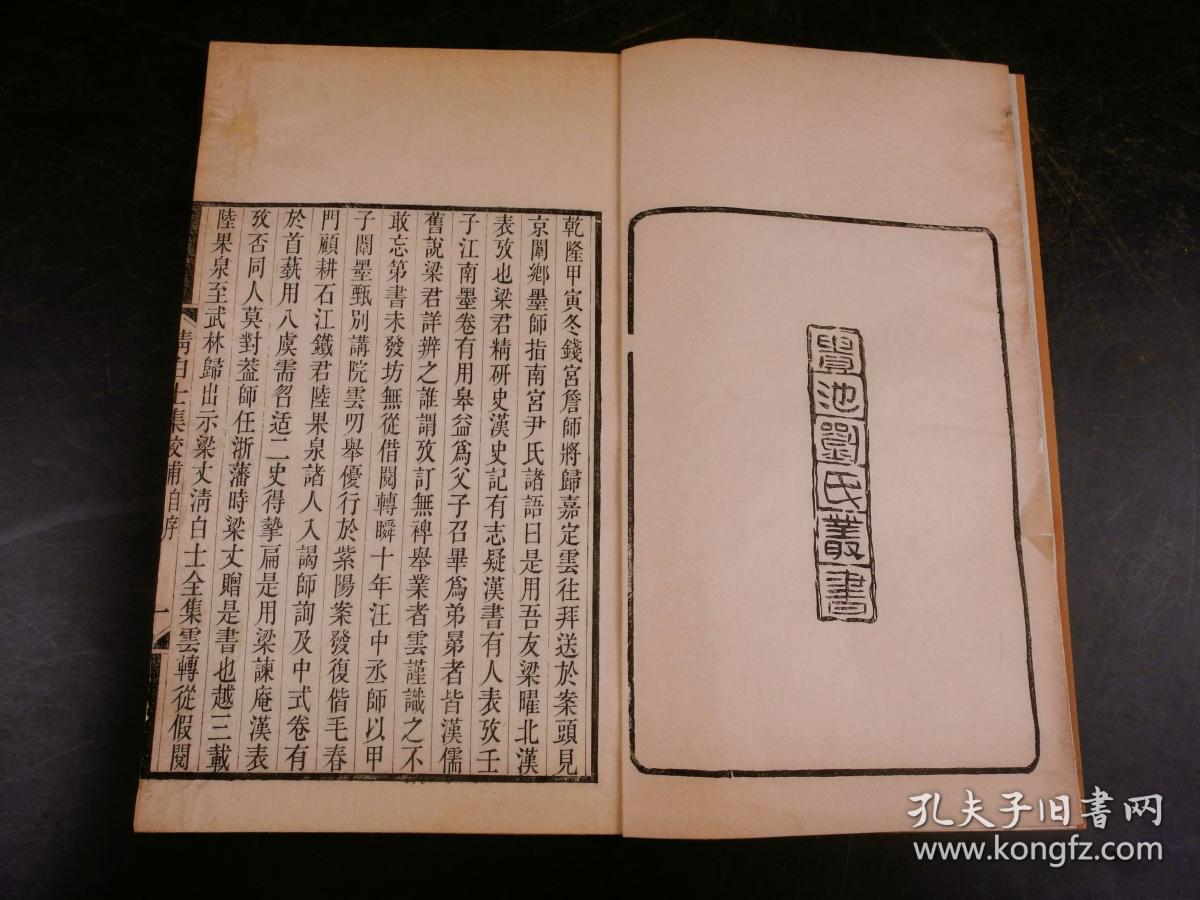 貴池劉氏叢書
乾隆甲寅冬錢宮詹師將歸嘉定雲往拜送於案頭見
京闈鄉墨師指南宮尹氏諸語曰是用吾友梁曜北漢
表攷也梁君精研史漢史記有志疑漢書有人表攷壬
子江南墨卷有用皋益爲父子召畢爲弟晜者皆漢儒
舊說梁君詳辨之誰謂攷訂無裨舉業者雲謹識之不
敢忘第書未發坊無從借閱轉瞬十年汪中丞師以甲
子闈墨甄別講院雲叨舉優行於紫陽案發復偕毛春
門顧耕石江鐵君陸果泉諸人入謁師詢及中式卷有
於首蓺用八虞需䂏适二史得摯扁是用梁諫庵漢表
攷否同人莫對葢師任浙藩時梁丈贈是書也越三載
陸果泉至武林歸出示梁丈淸白士全集雲轉從假閱
淸白士集校補自序
一
孔夫子旧书网
www.kongfz.com